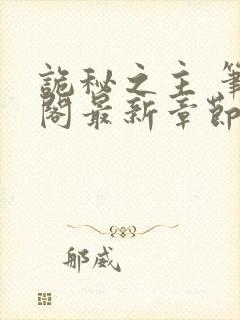 詭秘之主 筆
閣最新章節
郍威